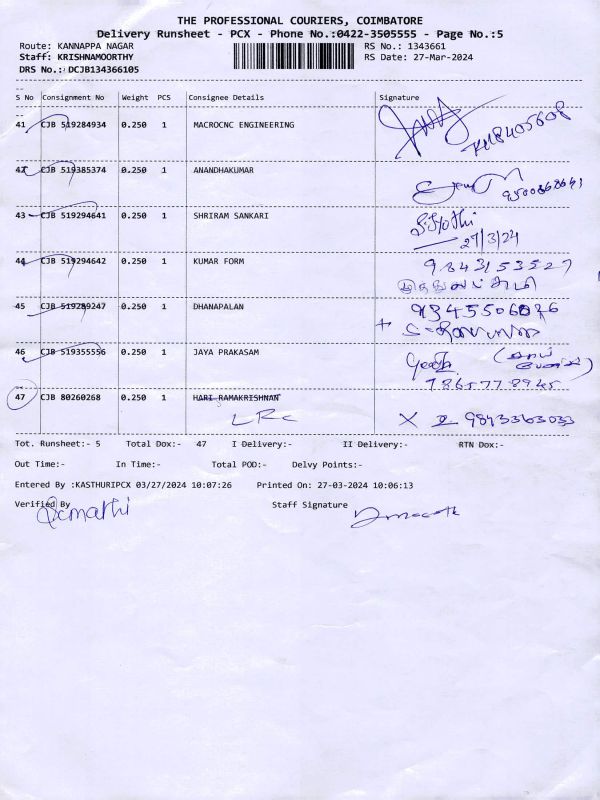 THE PROFESSIONAL COURIERS, COIMBATORE
Delivery Runsheet - PCX - Phone No.:0422-3505555 - Page No.:5
Route: KANNAPPA NAGAR RS No.: 1343661
Staff: KRISHNAMOORTHY RS Date: 27-Mar-2024
DRS No.: DCJB134366105
S No Consignment No Weight PCS Consignee Details Signature
41 CJB 519284934 0.250 1 MACROCNC ENGINEERING
42 CJB 519385374 0.250 1 ANANDHAKUMAR
43 CJB 519294641 0.250 1 SHRIRAM SANKARI S.Jyothi
27/3/24
44 CJB 519294642 0.250 1 KUMAR FORM 9843153527
45 CJB 519289247 0.250 1 DHANAPALAN
46 CJB 519355556 0.250 1 JAYA PRAKASAM
7865778945
47 CJB 80260268 0.250 1 HARI RAMAKRISHNAN
Tot. Runsheet:- 5 Total Dox:- 47 I Delivery:- II Delivery:- RTN Dox:-
Out Time:- In Time:- Total POD:- Delvy Points:-
Entered By :KASTHURIPCX 03/27/2024 10:07:26 Printed On: 27-03-2024 10:06:13
Verified By Staff Signature